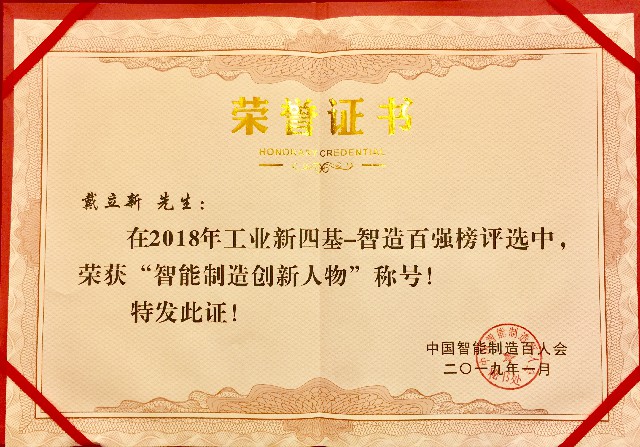 荣誉证书
HONORARY CREDENTIAL
戴立新 先生：
在2018年工业新四基-智造百强榜评选中，
荣获“智能制造创新人物”称号！
特发此证！
中国智能制造百人会
二〇一九年一月